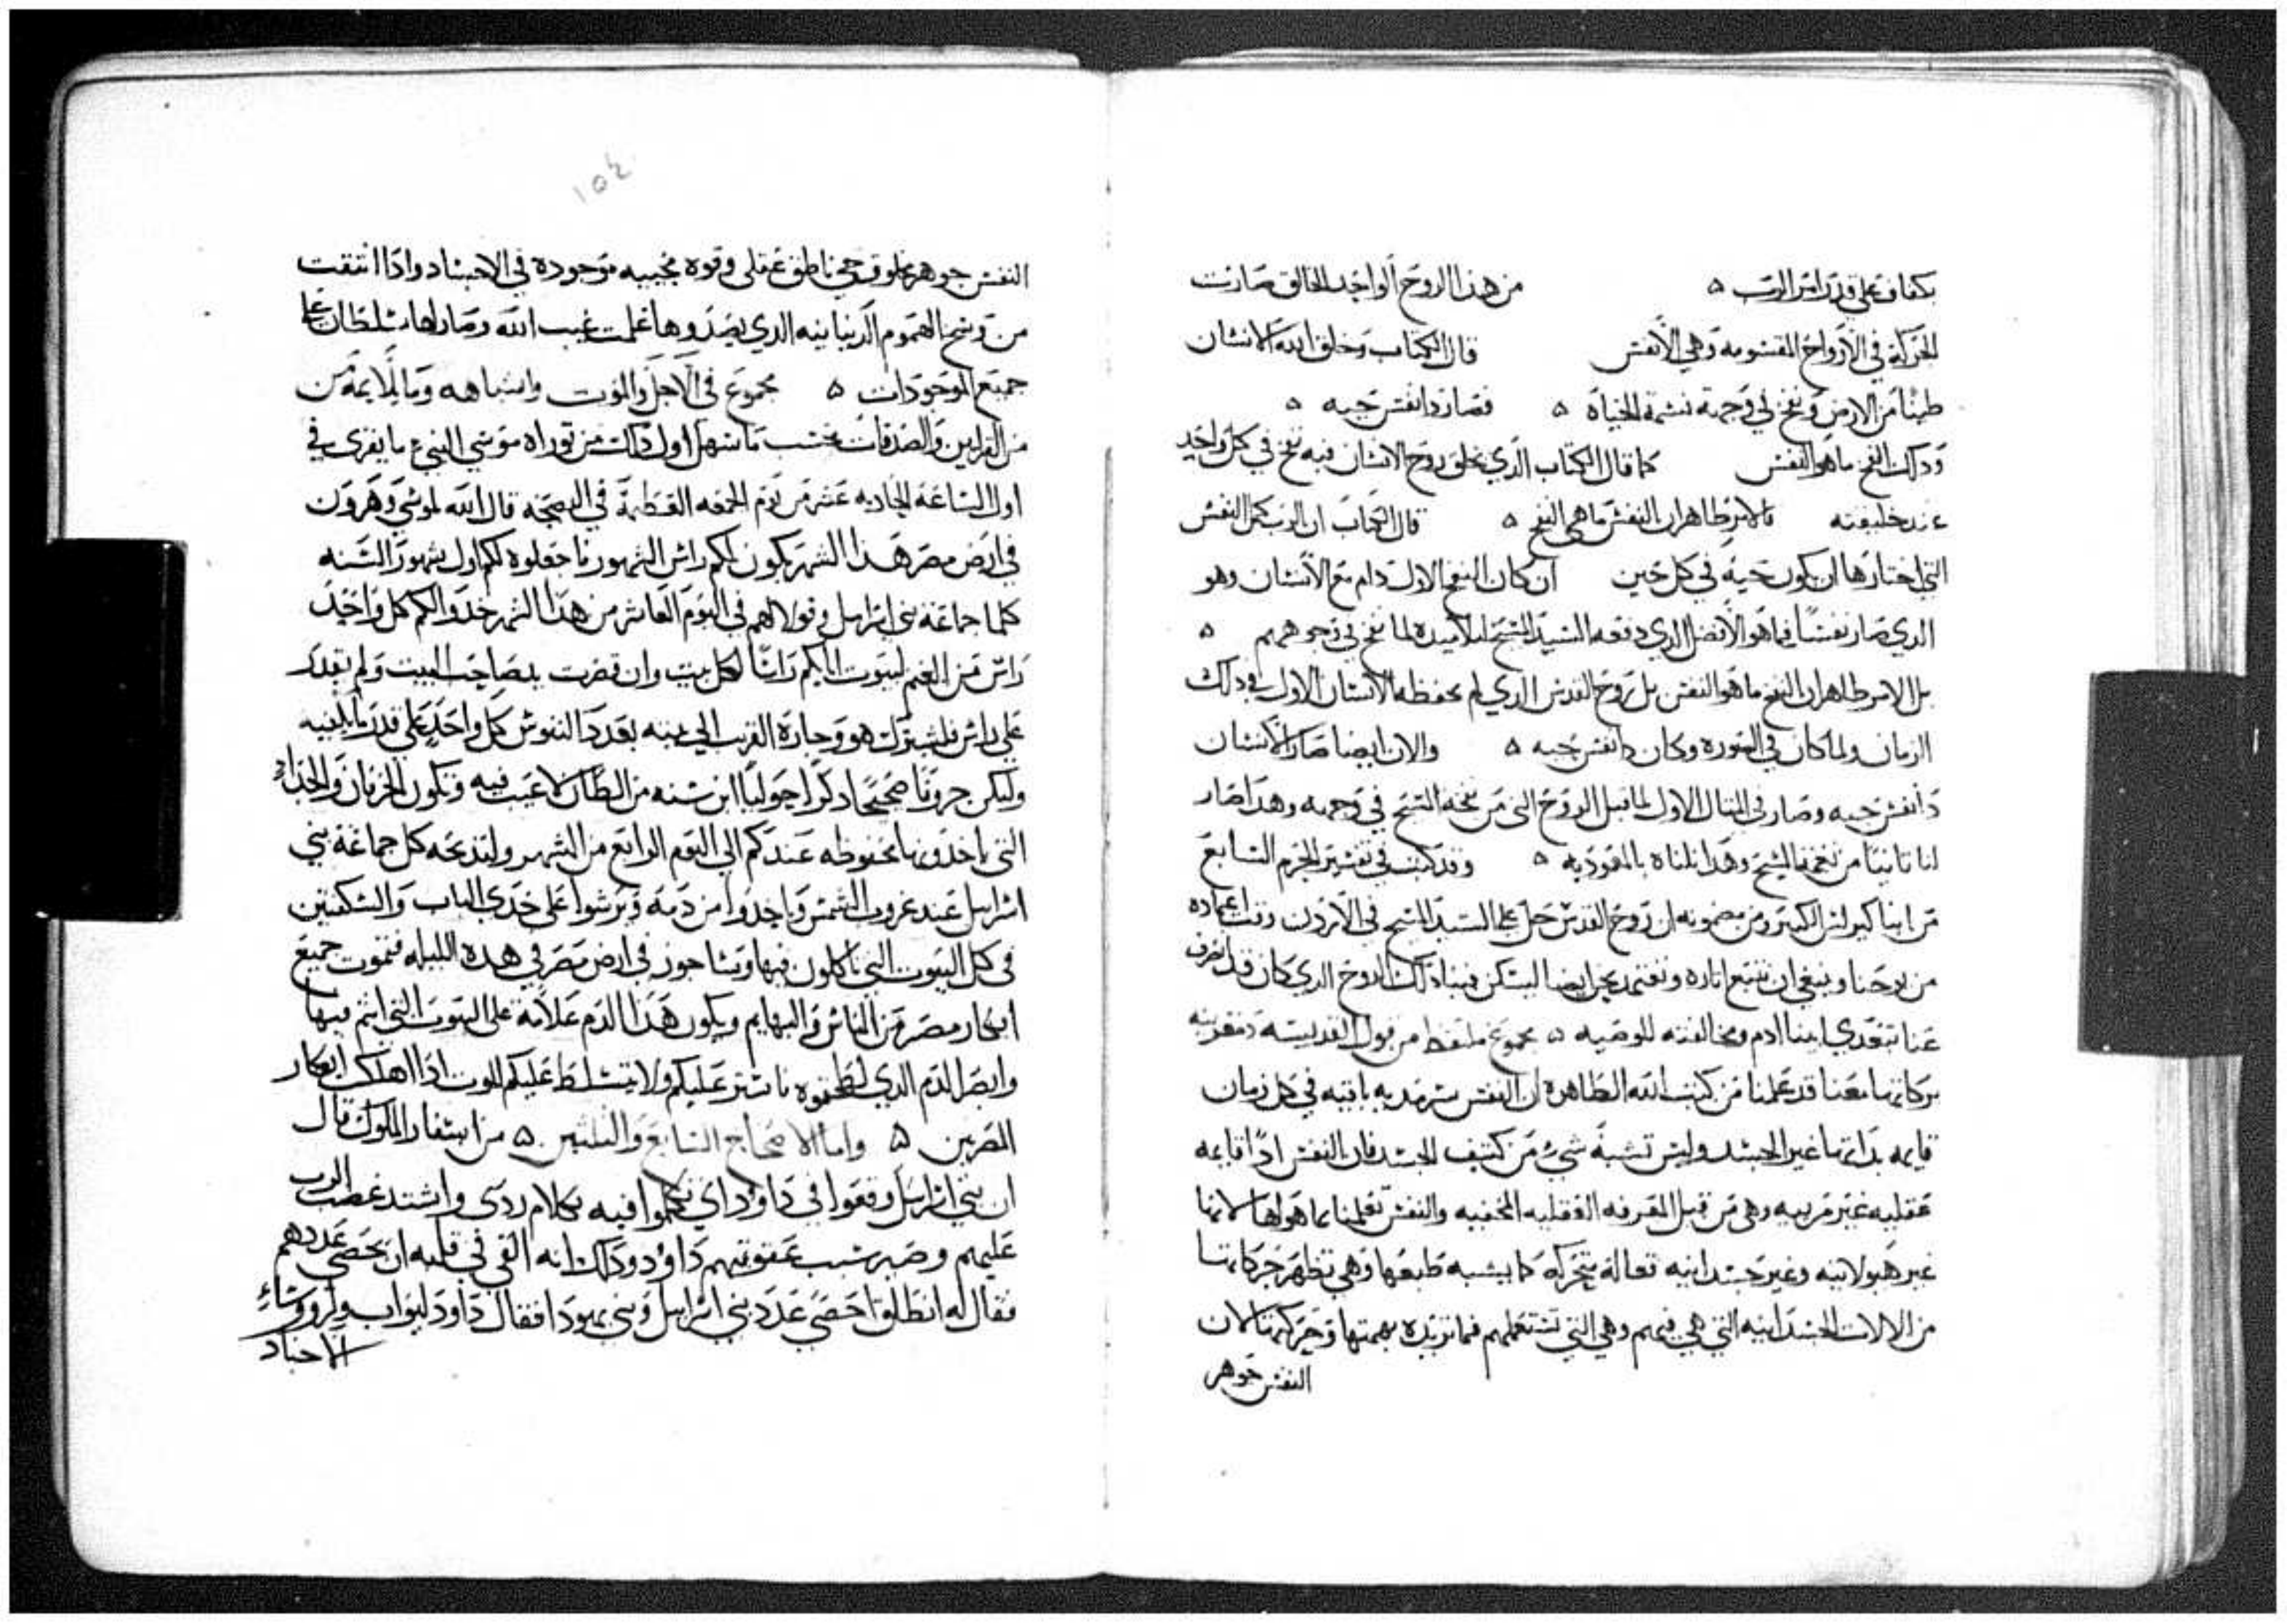 بكفاف على قدر امر الرب ۵ من هذا الروح الواحد الخالق صارت
الحركة في الارواح المقسومه وهي الانفس قال الكتاب وخلق الله الانسان
طينا من الارض ونفخ في وجهه نسمة الحياة ۵ فصار دا نفس حيه ۵
ودلك النفخ ما هو النفس كما قال الكتاب الدي يخلق روح الانسان فيه نفخ في كل واحد
عند خليقته فالامر ظاهر ان النفس ما هي النفخ ۵ قال الكتاب ان الرب النفس
التي اختارها ان يكون حية في كل حين ان كان النفخ الاول دام مع الانسان وهو
الدي صار نفسا فما هو الافضل الدي دفعه السيد المسيح لتلاميده لما نفخ في وجوههم ۵
بل الامر ظاهر ان النفخ ما هو النفس بل روح القدس الدي لم يحفظه الانسان الاول في دلك
الزمان ولما كان في الصورة وكان دا نفس حيه ۵ والان ايضا صار الانسان
دا نفس حيه وصار في المثال الاول لما قبل الروح التي من نفخه المسيح في وجهه وهدا صار
لنا ثانيا من نفخة المسيح وهدا نلناه بالمعودية ۵ وقد كتب في تفسير الحزم السابع
من ابنا كيرلس الكبير ومن مضمونه ان روح القدس حل على السيد المسيح في الاردن وقت اعتماده
من يوحنا وينبغي ان نتبع اثاره ونعتمد نحن ايضا ليسكن فينا دلك الروح الدي كان قد انصرف
عنا بتعدي ابينا ادم ومخالفته للوصيه ۵ مجموع ملتقط من قول القديسه
بركاتها معنا قد علمنا من كتب الله الطاهرة ان النفس سرمديه باقيه في كل زمان
قايمه بداتها غير الجسد وليس تشبه شيء من كثيف الجسد فان النفس ادا قايمه
عقليه غير مريبه وهي من قبل المعرفه العقليه المخفيه والنفس تعلمنا بما هو لها لانها
غير هيولانيه وغير جسدانيه فعالة متحركة كما يشبه طبعها وهي تظهر حركاتها
من الالات الجسدانيه التي هي فيهم وهي التي تستعملهم فيما تريده بهمتها وحركتها لان
النفس جوهر
١٥٤
النفس جوهر مخلوق حي ناطق عقلي وقوه محييه موجوده في الاجساد وادا انتقت
من وسخ الهموم الدنيانيه الدي يصدوها علمت غيب الله وصار لها سلطان على
جميع الموجودات ۵ مجموع في الاجل والموت واشباهه وما يلايمه من
من القرابين والصدقات بحسب ما سهل اول دلك من توراه موسي النبي ما يقرى في
اول الساعة الحاديه عشر من يوم الجمعه العظيمة في البصخه قال الله لموسي وهرون
في ارض مصر هدا الشهر يكون لكم راس الشهور فاجعلوه لكم اول شهور السنه
كلما جماعة بني اسرايل وقولا لهم في اليوم العاشر من هدا الشهر خدوا لكم كل واحد
راس من الغنم لبيوت ابايكم راسا لكل بيت وان قصرت يد صاحب البيت ولم يقدر
على راس فليشترك هو وجاره القريب الى بيته بعدد النفوس كل واحد على قدر ما يكفيه
وليكن خروفا صحيحا دكرا حوليا ابن سنه من الضان لا عيب فيه وتكون الخرفان والجدا
التي تاخدونها محفوظه عندكم الي اليوم الرابع من الشهر ولتدبحه كل جماعة بني
اسرايل عند غروب الشمس وياخدوا من دمه ويرشوا على خدي الباب والسكفتين
في كل البيوت التي ياكلون فيها وتشا جوز في ارض مصر في هده الليله فتموت جميع
ابكار مصر من الناس والبهايم ويكون هدا الدم علامة على البيوت التي انتم فيها
وابصر الدم الدي لطختوه فاستر عليكم ولا يتسلط عليكم الموت ادا اهلك ابكار
المصرين ۵ واما الاصحاح السابع والثلثين ۵ من اسفار الملوك قال
ان بني اسرايل وقعوا في داوود اي تكلموا فيه بكلام ردي واشتد غضب الرب
عليهم وصير سبب عقوبتهم داوود ودلك انه القي في قلبه ان يحصي عددهم
فقال له انطلق احصي عدد بني اسرايل وبني يهودا فقال داود ليواب ولروساء
الاجناد